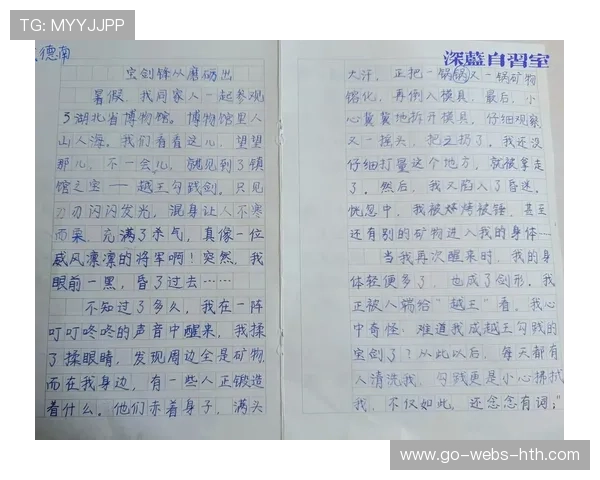 TG: MYYJJPP
德南
宝剑锋从磨砺出
暑假,我同家人一起参观
了湖北省博物馆。博物馆里人
山人海。我们看看这儿,望望
那儿,不一会儿,就见到了镇
馆之宝——越王勾践剑。只见
刃刃闪闪发光,混身让人不寒
而栗,充满了杀气,真像一位
威风凛凛的将军啊!突然,我
眼前一黑,昏了过去……
不知过了多久,我在一阵
叮叮咚咚的声音中醒来,我揉
了揉眼睛,发现周边全是矿物,
而在我身边,有一些人正锻造
着什么。他们赤着身子,满头
深蓝自習室
大汗,正把一锅锅又一锅矿物
熔化,再倒入模具,最后,小
心翼翼地拆开模具,仔细观察
又一摇头,把它扔了。我还没
仔细打量这个地方,就被拿走
了。然后,我又陷入了昏迷。
恍忽中,我被烤被锤,甚至
还有别的矿物进入我的身体…
当我再次醒来时,我的身
体轻便多了,也成了剑形。我
正被人端给"越王"看,我心
中奇怪:难道我成越王勾践的
宝剑了?从此以后,每天都有
人清洗我,勾践更是小心拂拭
我,不仅如此,还念念有词:"
www.go-webs-hth.com